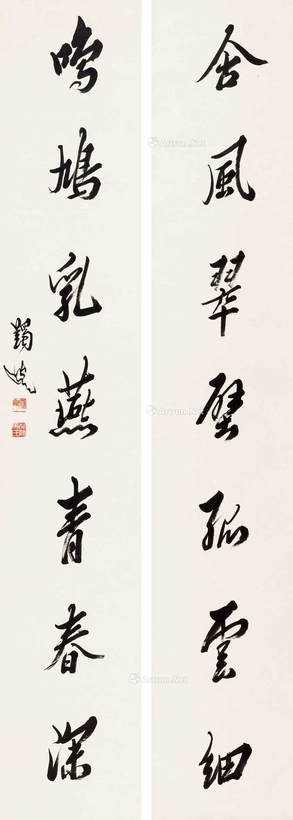 含風翠壁孤雲細
鳴鳩乳燕青春深
蠲叟
Artron.Net
Artron.Net
Artron.Net